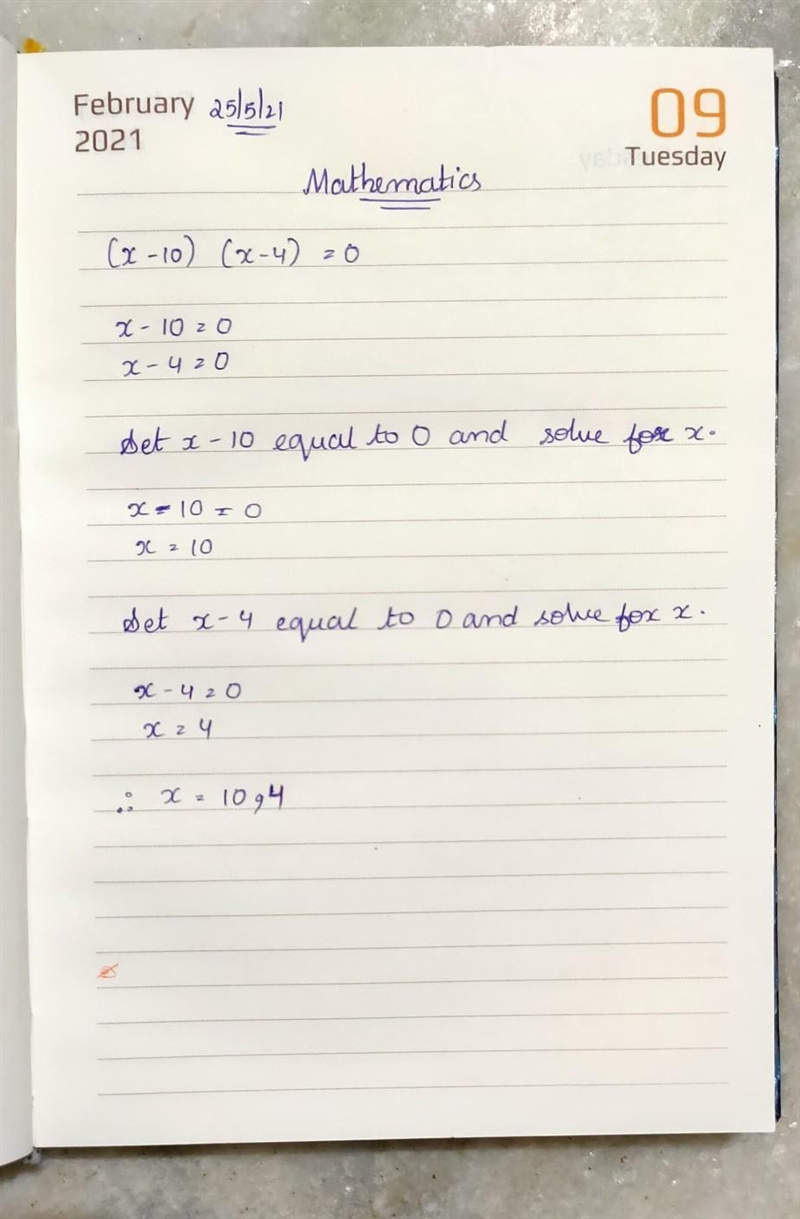 February 25/5/21 09
2021 Tuesday
Mathematics
(x - 10) (x - 4) = 0
x - 10 = 0
x - 4 = 0
Set x - 10 equal to 0 and solve for x.
x - 10 = 0
x = 10
Set x - 4 equal to 0 and solve for x.
x - 4 = 0
x = 4
∴ x = 10, 4